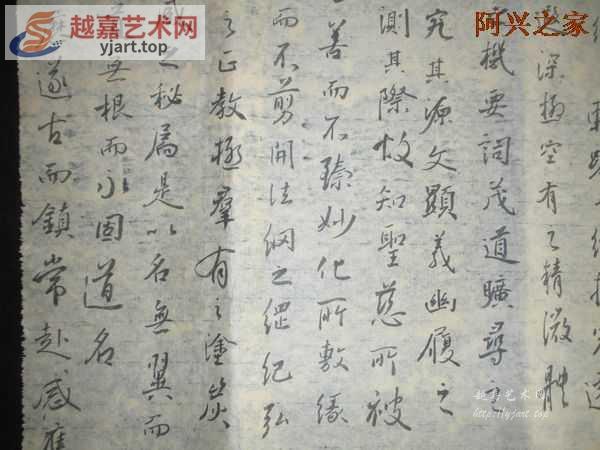 深極空有之精微體
機要詞茂道曠尋之
究其源文顯義幽履之
測其際故知聖慈所被
善而不臻妙化所敷緣
而不剪開法網之綱紀弘
之正教拯羣有之塗炭
藏之秘扃是以名無翼而
無根而永固道名
遂古而鎮常赴感應
越嘉艺术网
yjart.top
阿兴之家
越嘉艺术网
http://yjart.top